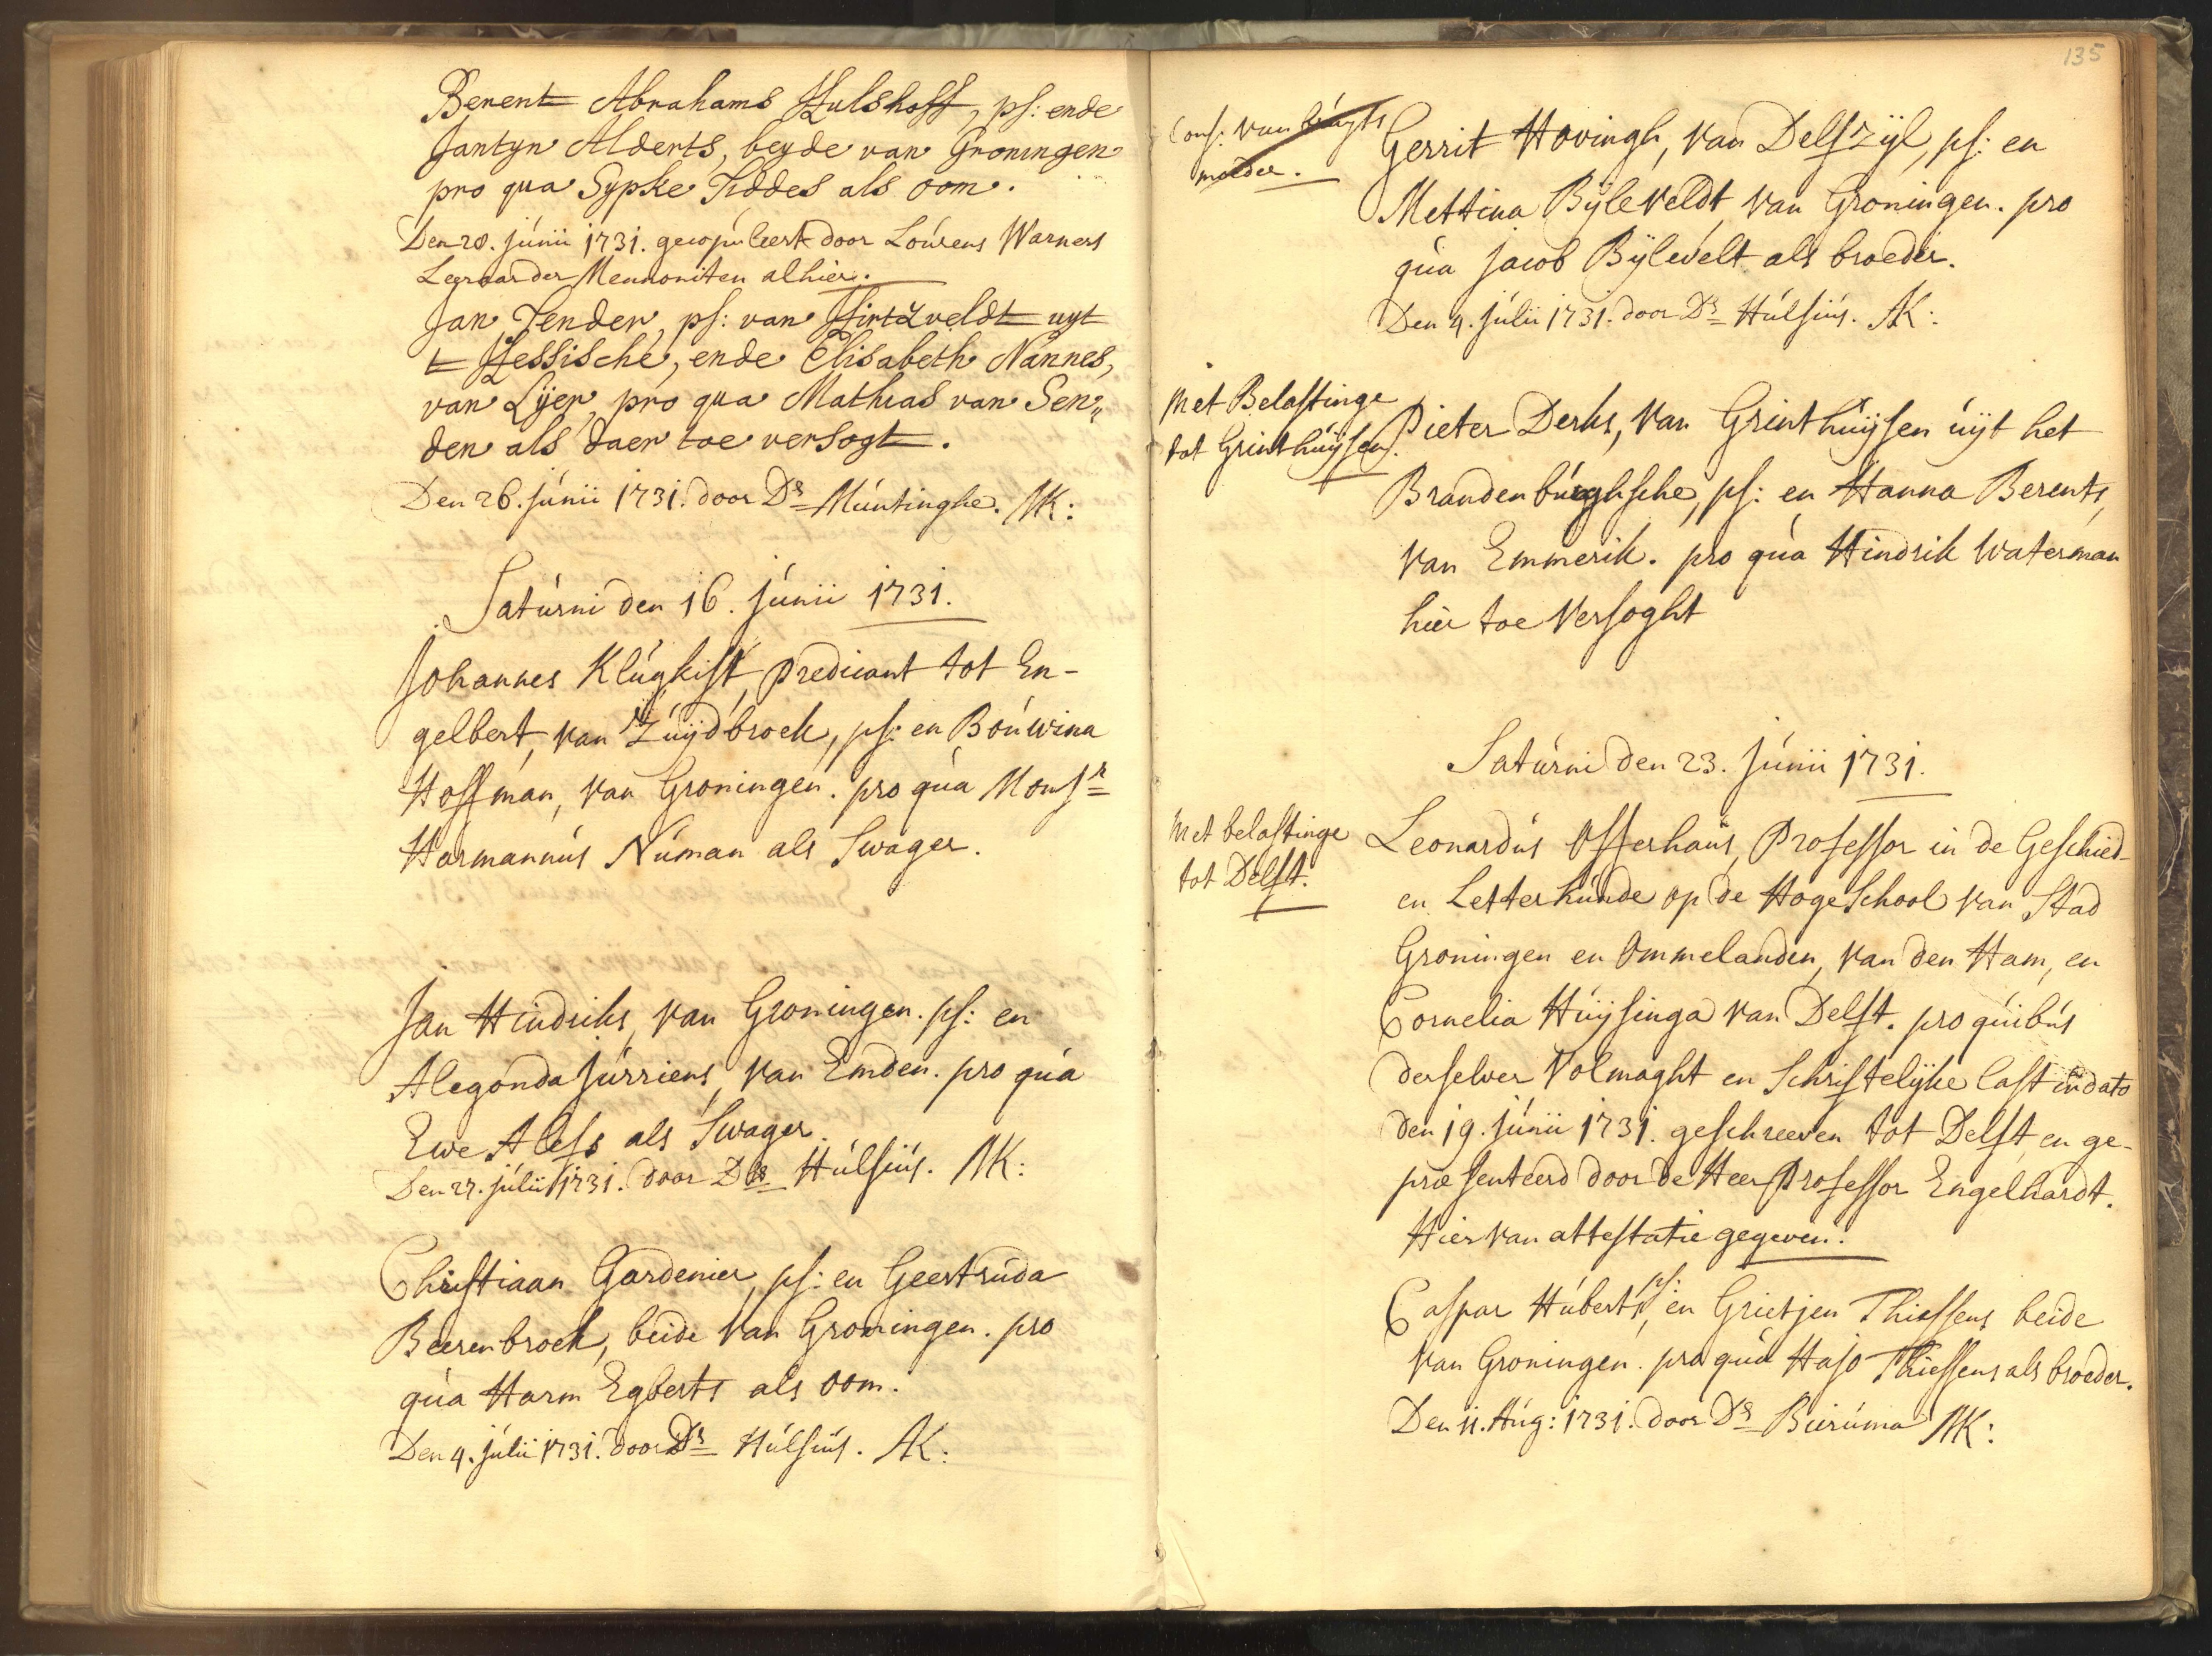 Berent Abrahams Hulshoff, ps: ende
Jantyn Alderts, beyde van Groningen
pro qua Sypke Tiddes als oom.
Den 20. júnii 1731. gecopúleert door Loúrens Warners
Leeraar der Mennoniten alhier.
Jan Tender, ps: van Hirtzveldt uyt
t Hessische, ende Elisabeth Nannes,
van Lijer, pro qua Mathias van Sen„
den als daer toe versogt.
Den 26. júnii 1731. door Ds Múntinghe. NK:
Satúrni den 16. júnii 1731.
Johannes Klúgkist, predicant tot En-
gelbert, van Zúijdbroek, ps: en Boúwina
Hoffman, van Groningen. pro qúa Monsr
Harmannús Núman als Swager.
Jan Hindriks, van Groningen. ps: en
Alegonda Júrriens, van Emden. pro qúa
Ewe Alefs als Swager.
Den 27. júlii 1731. door Ds Húlsiús. NK:
Christiaan Gardenier, ps: en Geertrúda
Beerenbroek, beide van Groningen. pro
qúa Harm Egberts als oom.
Den 4. júlii 1731. door Ds Húlsiús. NK:
135
Cons: van brúyts
moeder.
Gerrit Hovingh, van Delfzijl, ps: en
Mettina Bijleveldt van Groningen. pro
qúa Jacob Bijlevelt als broeder.
Den 4. júlii 1731. door Ds Húlsiús. NK:
Met Belastinge
tot Grinthúijsen.
Pieter Derks, van Grinthúijsen úijt het
Brandenbúrghsche, ps: en Hanna Berents,
van Emmerik. pro qúa Hindrik Waterman
hier toe versoght
Satúrni den 23. júnii 1731.
Met belastinge
tot Delft.
Leonardús Offerhaús, Professor in de Geschied-
en Letterkúnde op de Hoge School van Stad
Groningen en Ommelanden, van den Ham, en
Cornelia Húijsinga van Delft. pro qúibús
derselver Volmaght en Schriftelijke last in dato
den 19. júnii 1731. geschreeven tot Delft, en ge-
præsenteerd door de Heer Professor Engelhardt.
Hier van attestatie gegeven.
Caspar Húberts, ps: en Grietjen Thiessens beide
van Groningen. pro qúa Hajo Thiessens als broeder.
Den 11. Aúg: 1731. door Ds Bierúma NK: